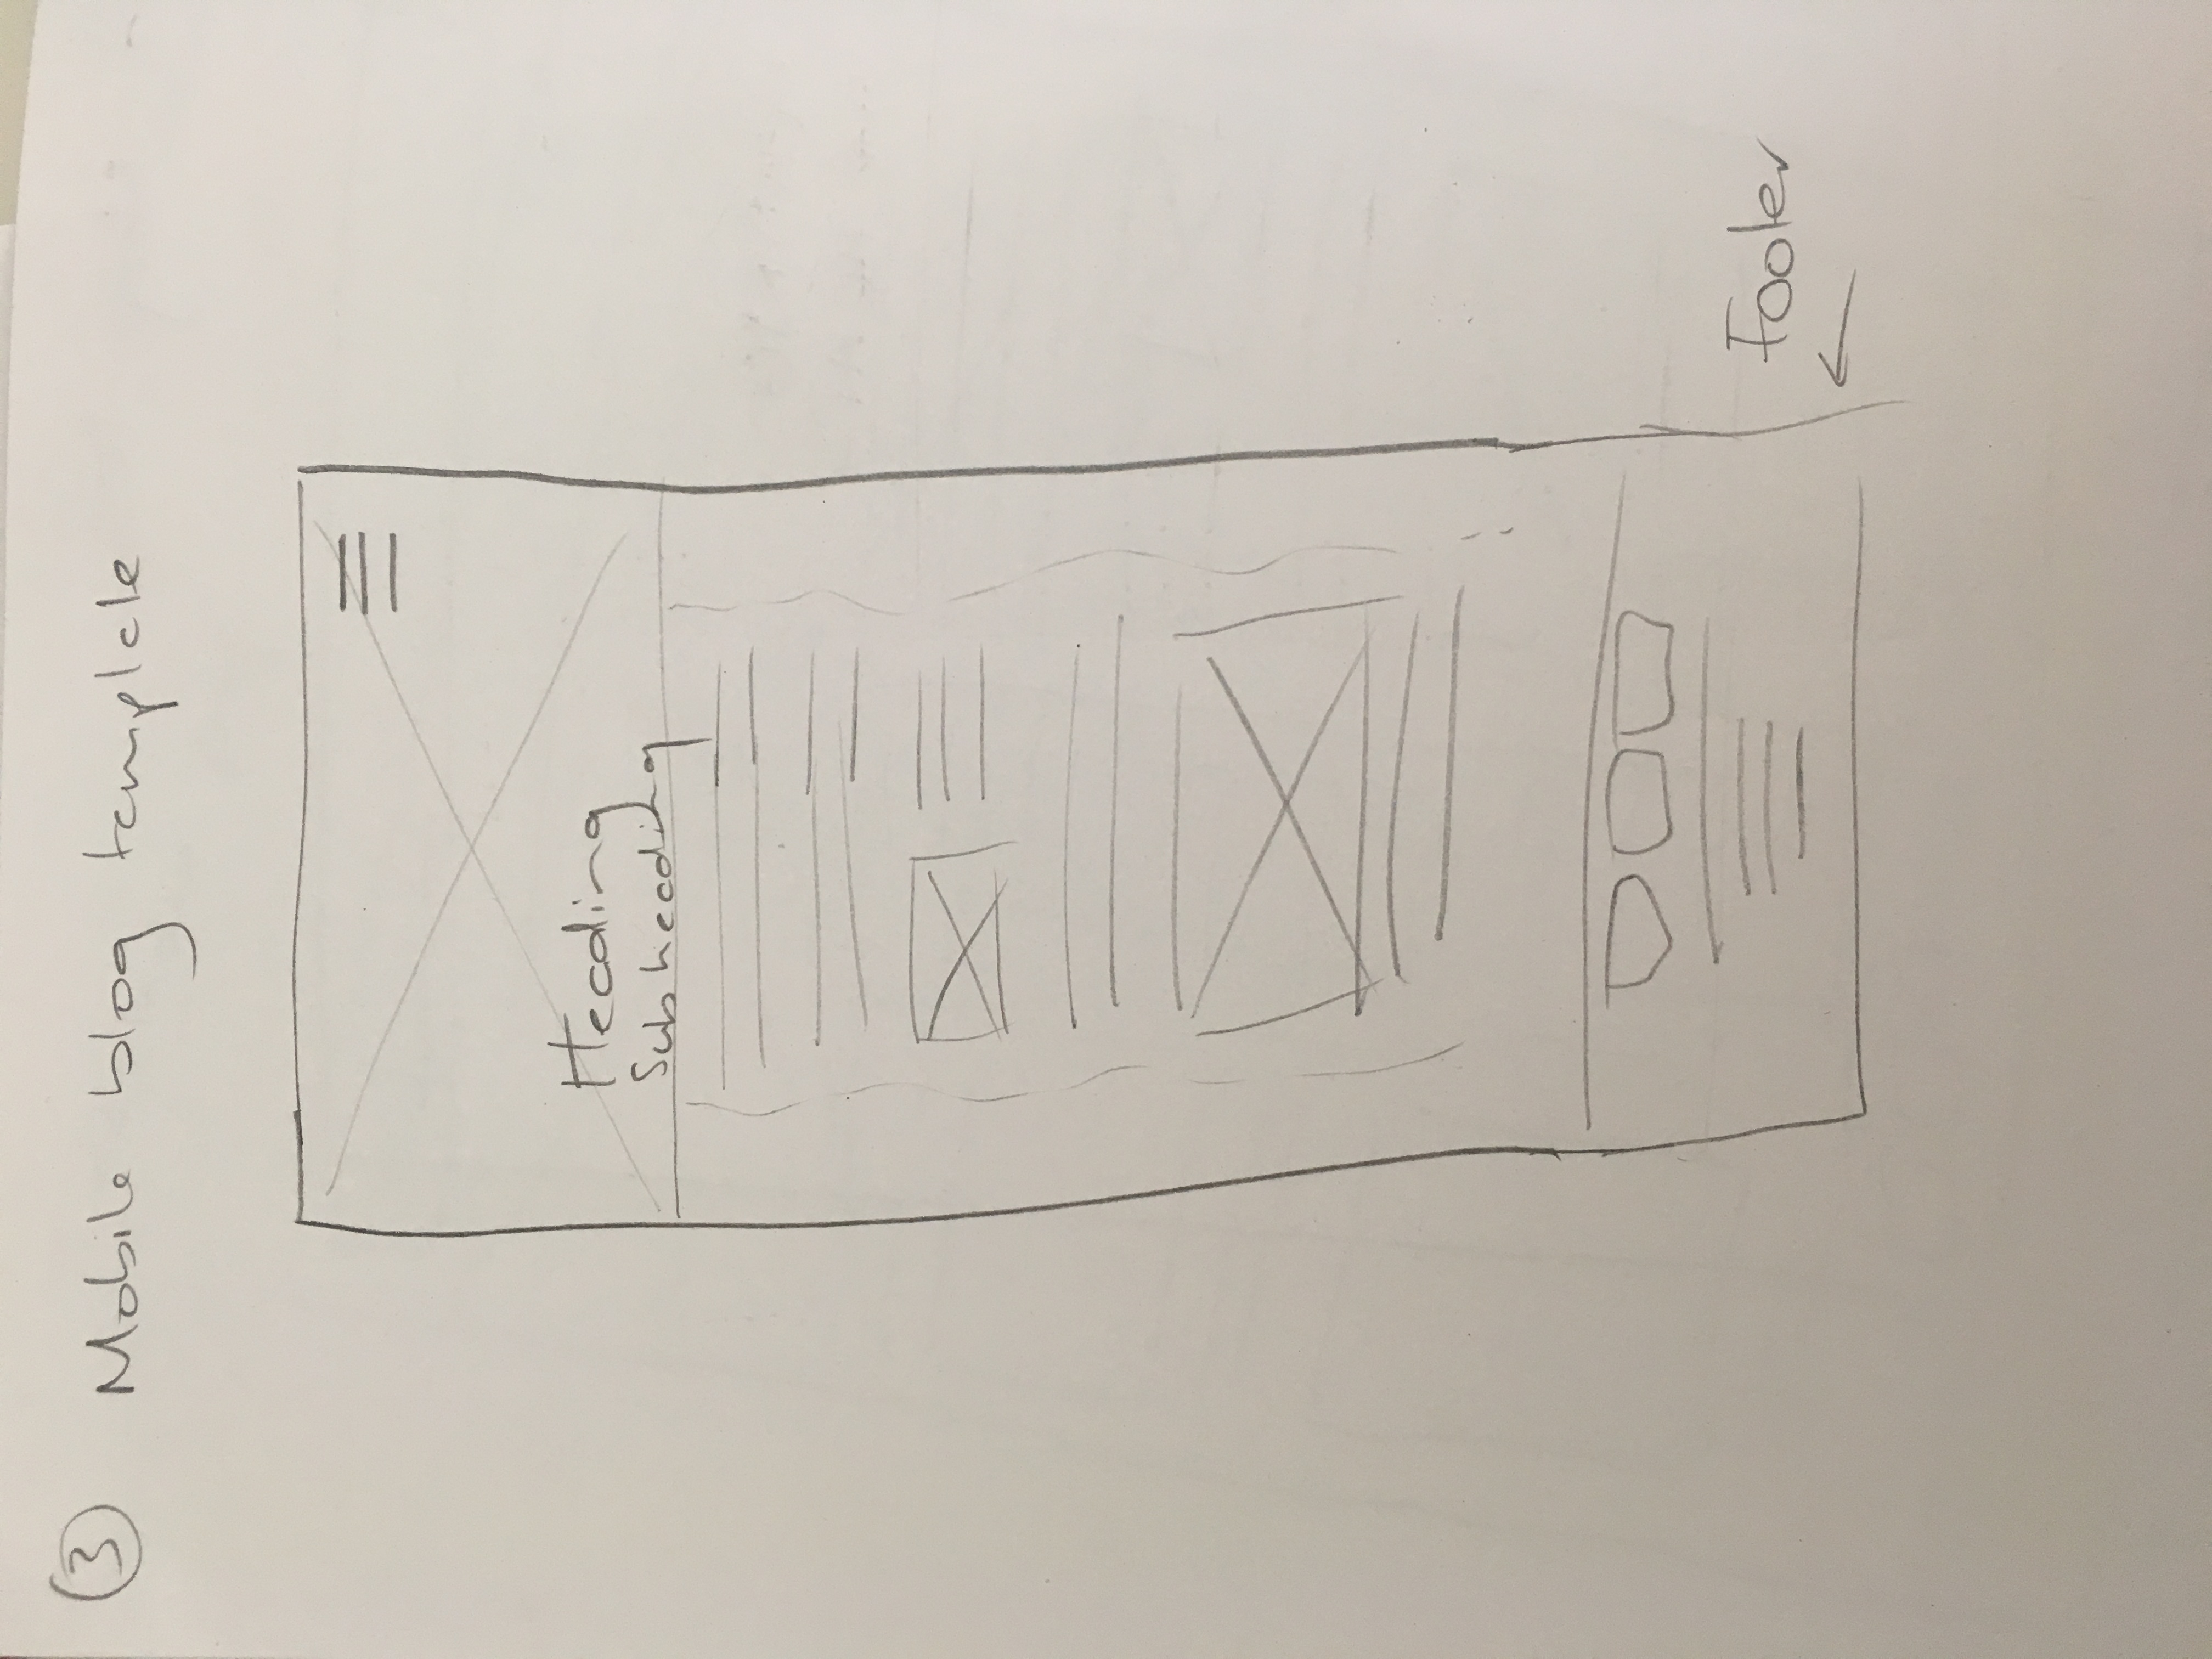 3 Mobile blog template
Heading
Subheading
Footer